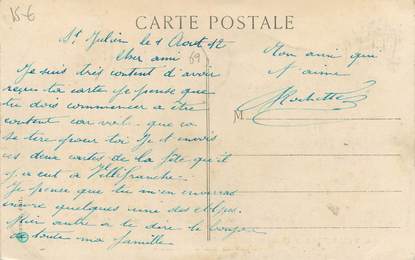 15-6
CARTE POSTALE
St Julien le 1 Aout 12
Cher ami
69
Je suis très content d'avoir
reçu ta carte je pense que
tu dois commencer a être
content car vol- que ça
se tire pour toi Je t envois
ces deux cartes de la fête qu'il
y a eut a Villefranche.
Je pense que tu m'en enverras
encore quelques une des Alpes.
Rien autre a te dire le bonjour
de toute ma famille
Ton ami qui
t aime
M
Rochette